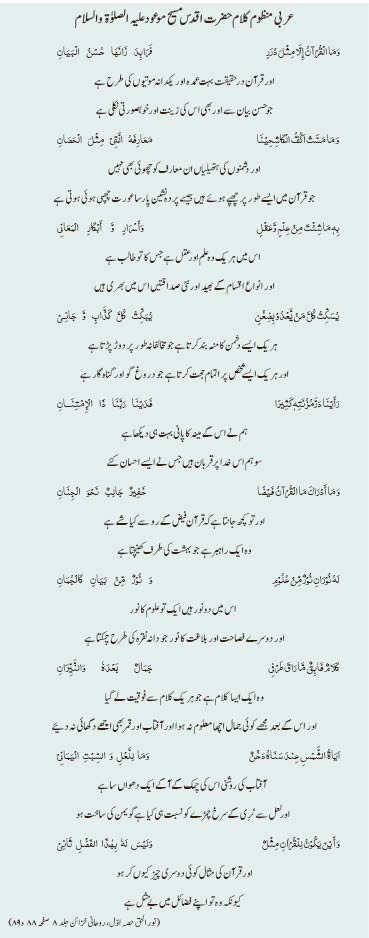 عربی منظوم کلام حضرت اقدس مسیح موعود علیہ الصلوٰۃ والسلام
وَمَا الْقُرْآنُ إِلَّا مِثْلَ دُرَرٍ فَرَائِدَ زَانَهَا حُسْنُ الْبَيَانِ
اور قرآن در حقیقت بہت عمدہ اور یکدانہ موتیوں کی طرح ہے
جو حسن بیان سے اور بھی اس کی زینت اور خوبصورتی نکلی ہے
وَمَا مَسَّتْ أَكُفُّ الْكَاشِحِيْنَا مَعَارِفَهُ الَّتِيْ مِثْلَ الْحَصَانِ
اور دشمنوں کی ہتھیلیاں ان معارف کو چھوئی بھی نہیں
جو قرآن میں ایسے طور پر چھپے ہوئے ہیں جیسے پردہ نشین پارسا عورت چھپی ہوئی ہوتی ہے
بِهِ مَا شِئْتَ مِنْ عِلْمٍ وَّعَقْلٍ وَأَسْرَارٍ وَّ أَبْكَارِ الْمَعَانِيْ
اس میں ہر یک وہ علم اور عقل ہے جس کا تو طالب ہے
اور انواع اقسام کے بھید اور نئی صداقتیں اس میں بھری ہیں
يُسَكِّتُ كُلَّ مَنْ يَّعْدُوْ بِضِغْنٍ يُبَكِّتُ كُلَّ كَذَّابٍ وَّ جَانِيْ
ہر یک ایسے دشمن کا منہ بند کرتا ہے جو مخالفانہ طور پر دوڑ پڑتا ہے
اور ہر یک ایسے شخص پر اتمام حجت کرتا ہے جو دروغ گو اور گناہ گار ہے
رَأَيْنَا دَرَّ مُزْنَتِهِ كَثِيْرًا فَدَيْنَا رَبَّنَا ذَا الْاِمْتِنَانِ
ہم نے اس کے مینہ کا پانی بہت ہی دیکھا ہے
سو ہم اس خدا پر قربان ہیں جس نے ایسے احسان کئے
وَمَا أَدْرَاكَ مَا الْقُرْآنُ فَيْضًا خَفِيْرٌ جَالِبٌ نَحْوَ الْجِنَانِ
اور تو کچھ جانتا ہے کہ قرآن فیض کے رو سے کیا شے ہے
وہ ایک راہبر ہے جو بہشت کی طرف کھینچتا ہے
لَهُ نُوْرَانِ نُوْرٌ مِّنْ عُلُوْمٍ وَ نُوْرٌ مِّنْ بَيَانٍ كَالْجُمَانِ
اس میں دو نور ہیں ایک تو علوم کا نور
اور دوسرے فصاحت اور بلاغت کا نور جو دانہ نقرہ کی طرح چمکتا ہے
كَلَامٌ فَائِقٌ مَّا رَاقَ طَرْفِيْ جَمَالٌ بَعْدَهُ وَالنَّيِّرَانِ
وہ ایک ایسا کلام ہے جو ہر یک کلام سے فوقیت لے گیا
اور اس کے بعد مجھے کوئی جمال اچھا معلوم نہ ہوا اور آفتاب اور قمر بھی اچھے دکھائی نہ دیئے
أَيَاةُ الشَّمْسِ عِنْدَ سَنَاهُ دَخْنٌ وَمَا لِلَّعْلِ وَ السِّبْتِ الْيَمَانِيْ
آفتاب کی روشنی اس کی چمک کے آگے ایک دھواں سا ہے
اور لعل سے نری کے سرخ چمڑے کو نسبت ہی کیا ہے گو یمن کی ساخت ہو
وَأَيْنَ يَكُوْنُ لِلْقُرْآنِ مِثْلٌ وَلَيْسَ لَهُ بِهٰذَا الْفَضْلِ ثَانِيْ
اور قرآن کی مثال کوئی دوسری چیز کیوں کر ہو
کیونکہ وہ تو اپنے فضائل میں بے مثل ہے
(نور الحق حصہ اوّل، روحانی خزائن جلد ۸ صفحہ ۸۸ و ۸۹)